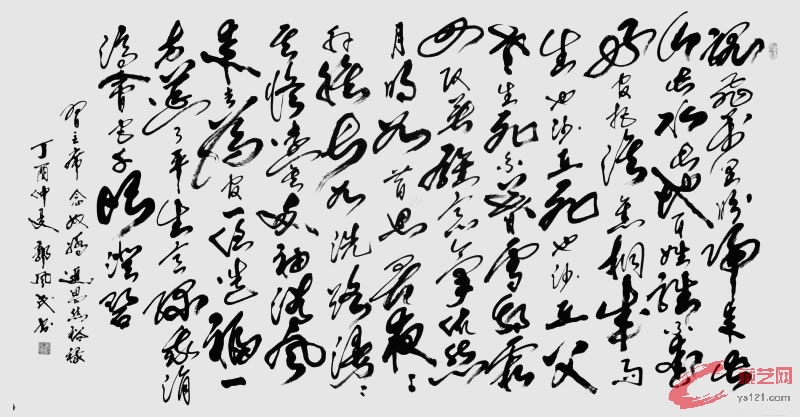 魂飛万里盼歸来此
水此山此地百姓誰不愛
好官把淚焦桐成雨
生也沙丘死也沙丘父
老生死系暮雪朝霜
毋改英雄意氣依然
月明如昔思君夜々
肝膽長如洗路漫々
其修遠矣两袖清風
来去為官一任造福一
方遂了平生意綠我涓
滴會它千頃澄碧
習主席 念奴嬌 追思焦裕祿
丁酉仲夏 郭風書
艺网
ys121.com